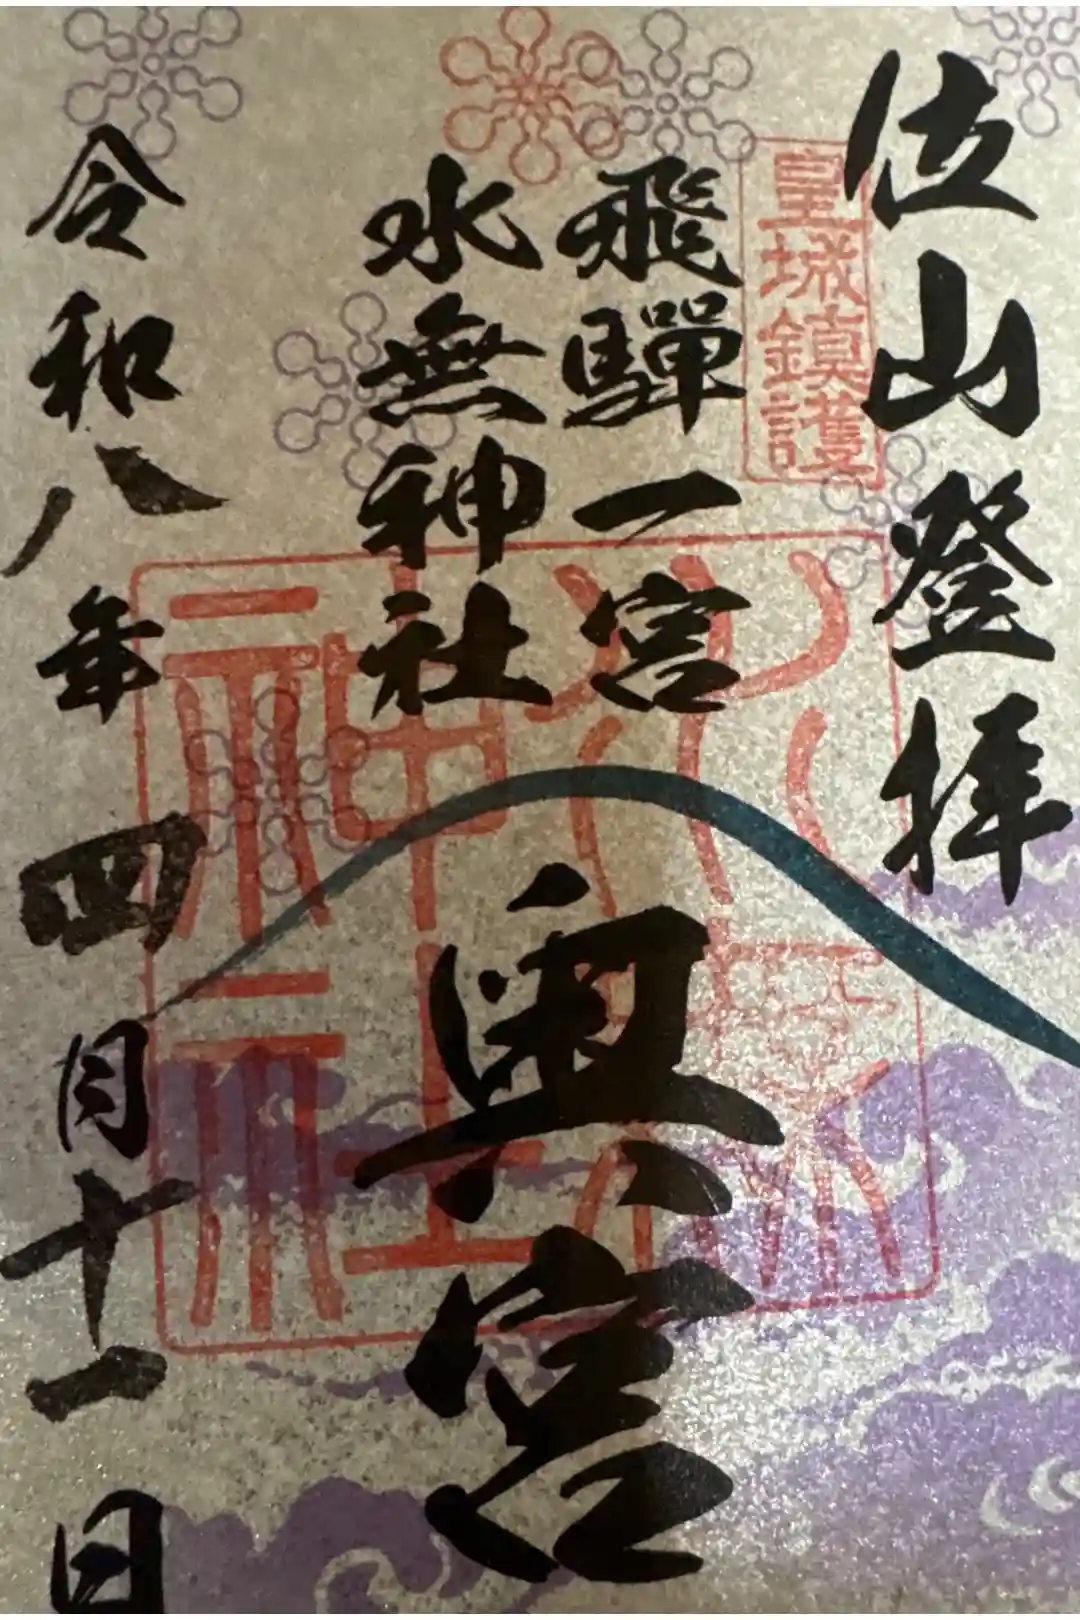 位山登拝
皇城鎮護
飛騨一宮
水無神社
奥宮
令和八年四月十一日